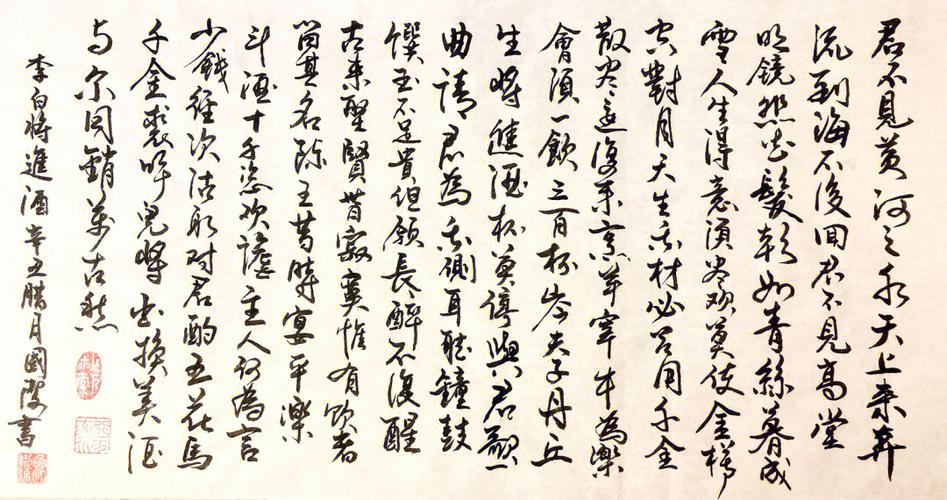 君不見黃河之水天上來奔
流到海不復回君不見高堂
明鏡悲白髮朝如青絲暮成
雪人生得意須盡歡莫使金樽
空對月天生我材必有用千金
散盡還復來烹羊宰牛為樂
會須一飲三百杯岑夫子丹丘
生將進酒杯莫停與君歌一
曲請君為我側耳聽鐘鼓
饌玉不足貴但願長醉不復醒
古來聖賢皆寂寞惟有飲者
留其名陳王昔時宴平樂
斗酒十千恣歡謔主人何為言
少錢徑須沽取對君酌五花馬
千金裘呼兒將出換美酒
與爾同銷萬古愁
李白將進酒辛丑臘月國陵書